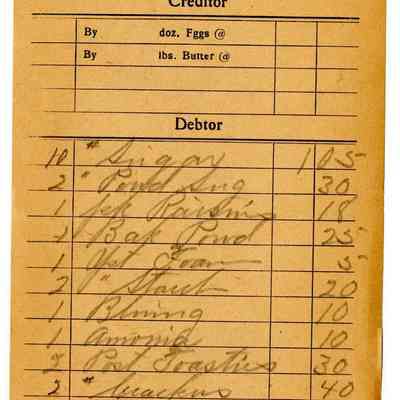 Creditor
By doz. Eggs @
By lbs. Butter @
Debtor
10 " Sugar 1 05
2 " Powd Sug 30
1 pk Raisins 18
1 Bak Powd 25
1 Yst Foam 5
2 " Starch 20
1 Bluing 10
1 Amonia 10
2 Post Toasties 30
2 " Crackers 40